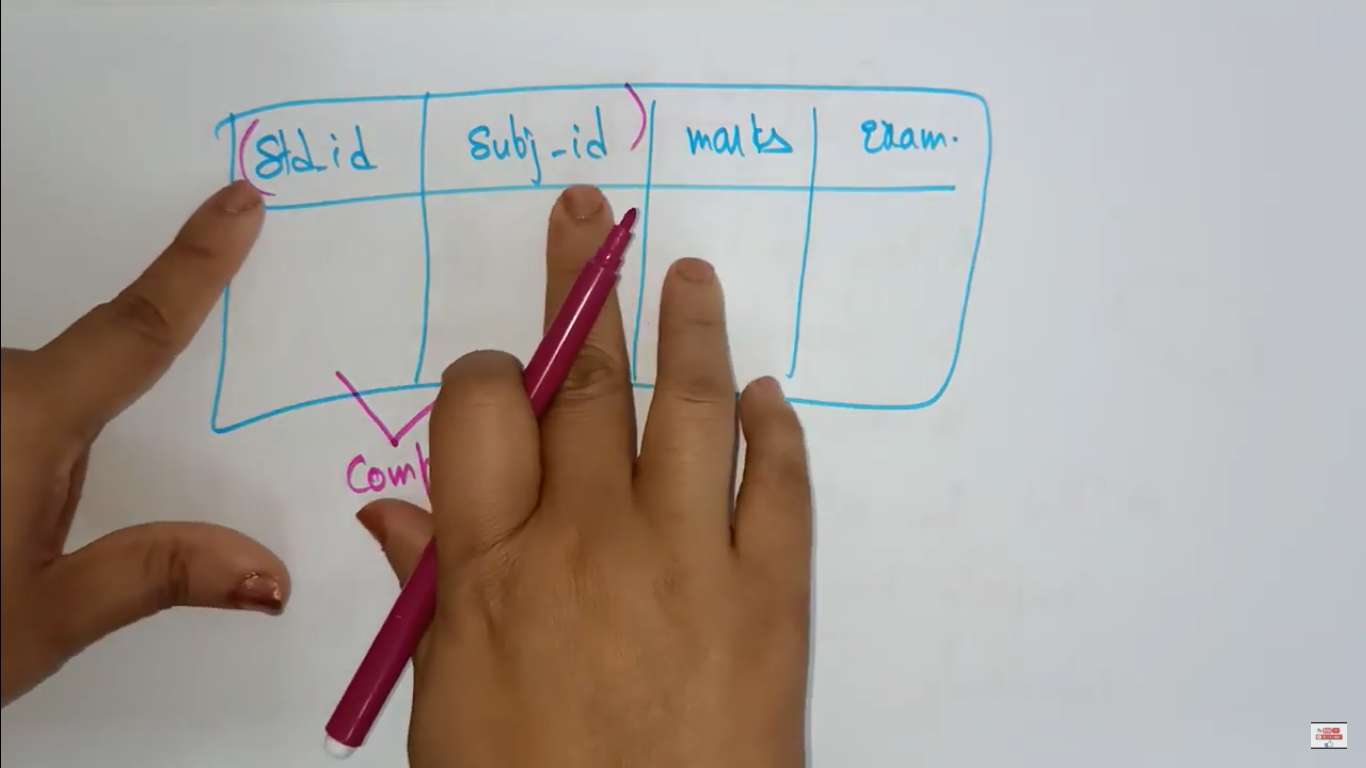 (Std_id subj_id) marks Exam.
Comp